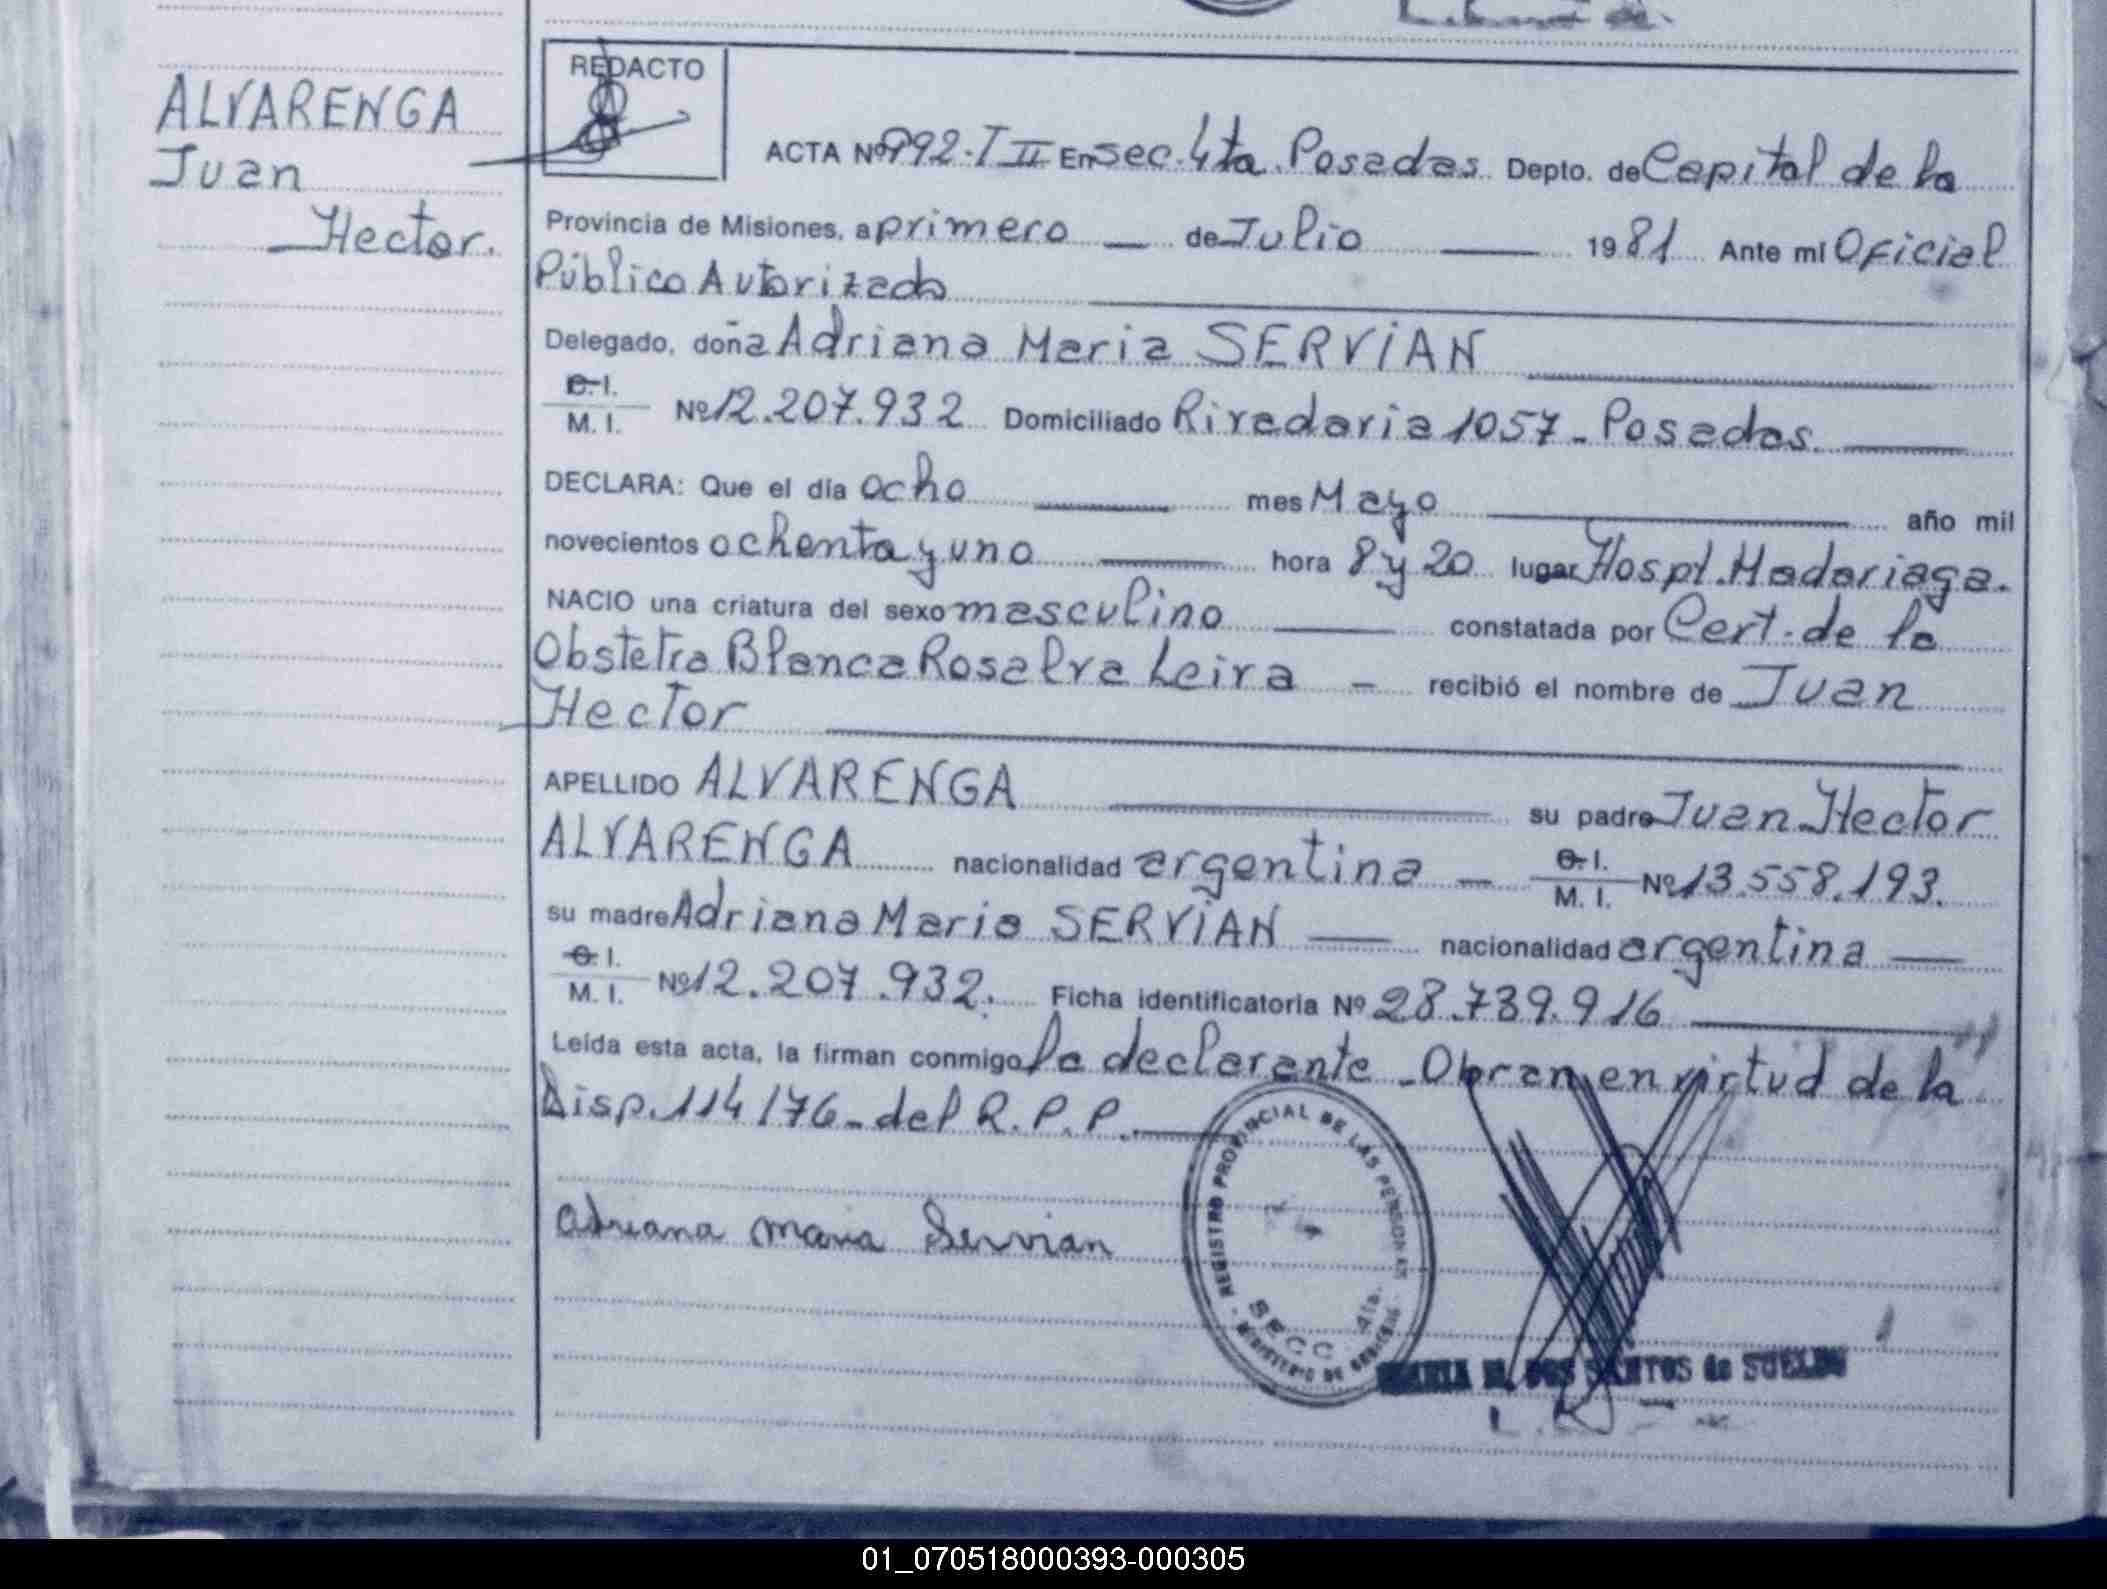 ALVARENGA
Juan
Hector.
REDACTO
ACTA Nº 992-T II En sec. 4ta. Posadas Depto. de Capital de la
Provincia de Misiones, a primero de Julio 1981 Ante mi Oficial
Público Autorizado
Delegado, doña Adriana Maria SERVIAN
C.I.
M. I. Nº 12.207.932 Domiciliado Rivadavia 1057 - Posadas.
DECLARA: Que el día ocho mes Mayo año mil
novecientos ochenta y uno hora 8 y 20 lugar Hospl. Madariaga.
NACIO una criatura del sexo masculino constatada por Cert. de la
Obstetra Blanca Rosalva Leira - recibió el nombre de Juan
Hector
APELLIDO ALVARENGA su padre Juan Hector
ALVARENGA nacionalidad argentina - C.I. M. I. Nº 13.558.193.
su madre Adriana Maria SERVIAN nacionalidad argentina
C.I.
M. I. Nº 12.207.932. Ficha identificatoria Nº 28.739.916
Leída esta acta, la firman conmigo la declarante - Obran en virtud de la
Disp. 114/76 - del R.P.P.
Adriana Maria Servian
REGISTRO PROVINCIAL DE LAS PERSONAS
SECC. 4ta.
MINISTERIO DE GOBIERNO
MARIA M. DOS SANTOS de SUELDO
01_070518000393-000305